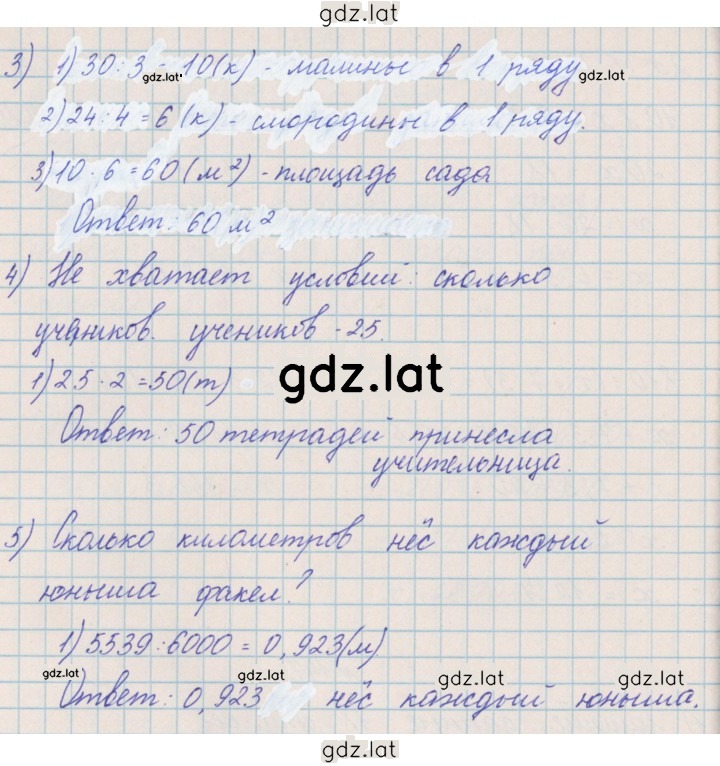 gdz.lat
3) 1) 30 : 3 = 10 (к) - малины в 1 ряду
gdz.lat
gdz.lat
2) 24 : 4 = 6 (к) - смородины в 1 ряду.
3) 10 · 6 = 60 (м²) - площадь сада
Ответ: 60 м²
4) Не хватает условий: сколько
учеников. учеников - 25.
1) 25 · 2 = 50 (т)
gdz.lat
Ответ: 50 тетрадей принесла
учительница.
5) Сколько километров нёс каждый
юныша факел?
1) 5539 : 6000 = 0,923 (м)
gdz.lat
gdz.lat
gdz.lat
gdz.lat
Ответ: 0,923 нёс каждый юныша.
gdz.lat